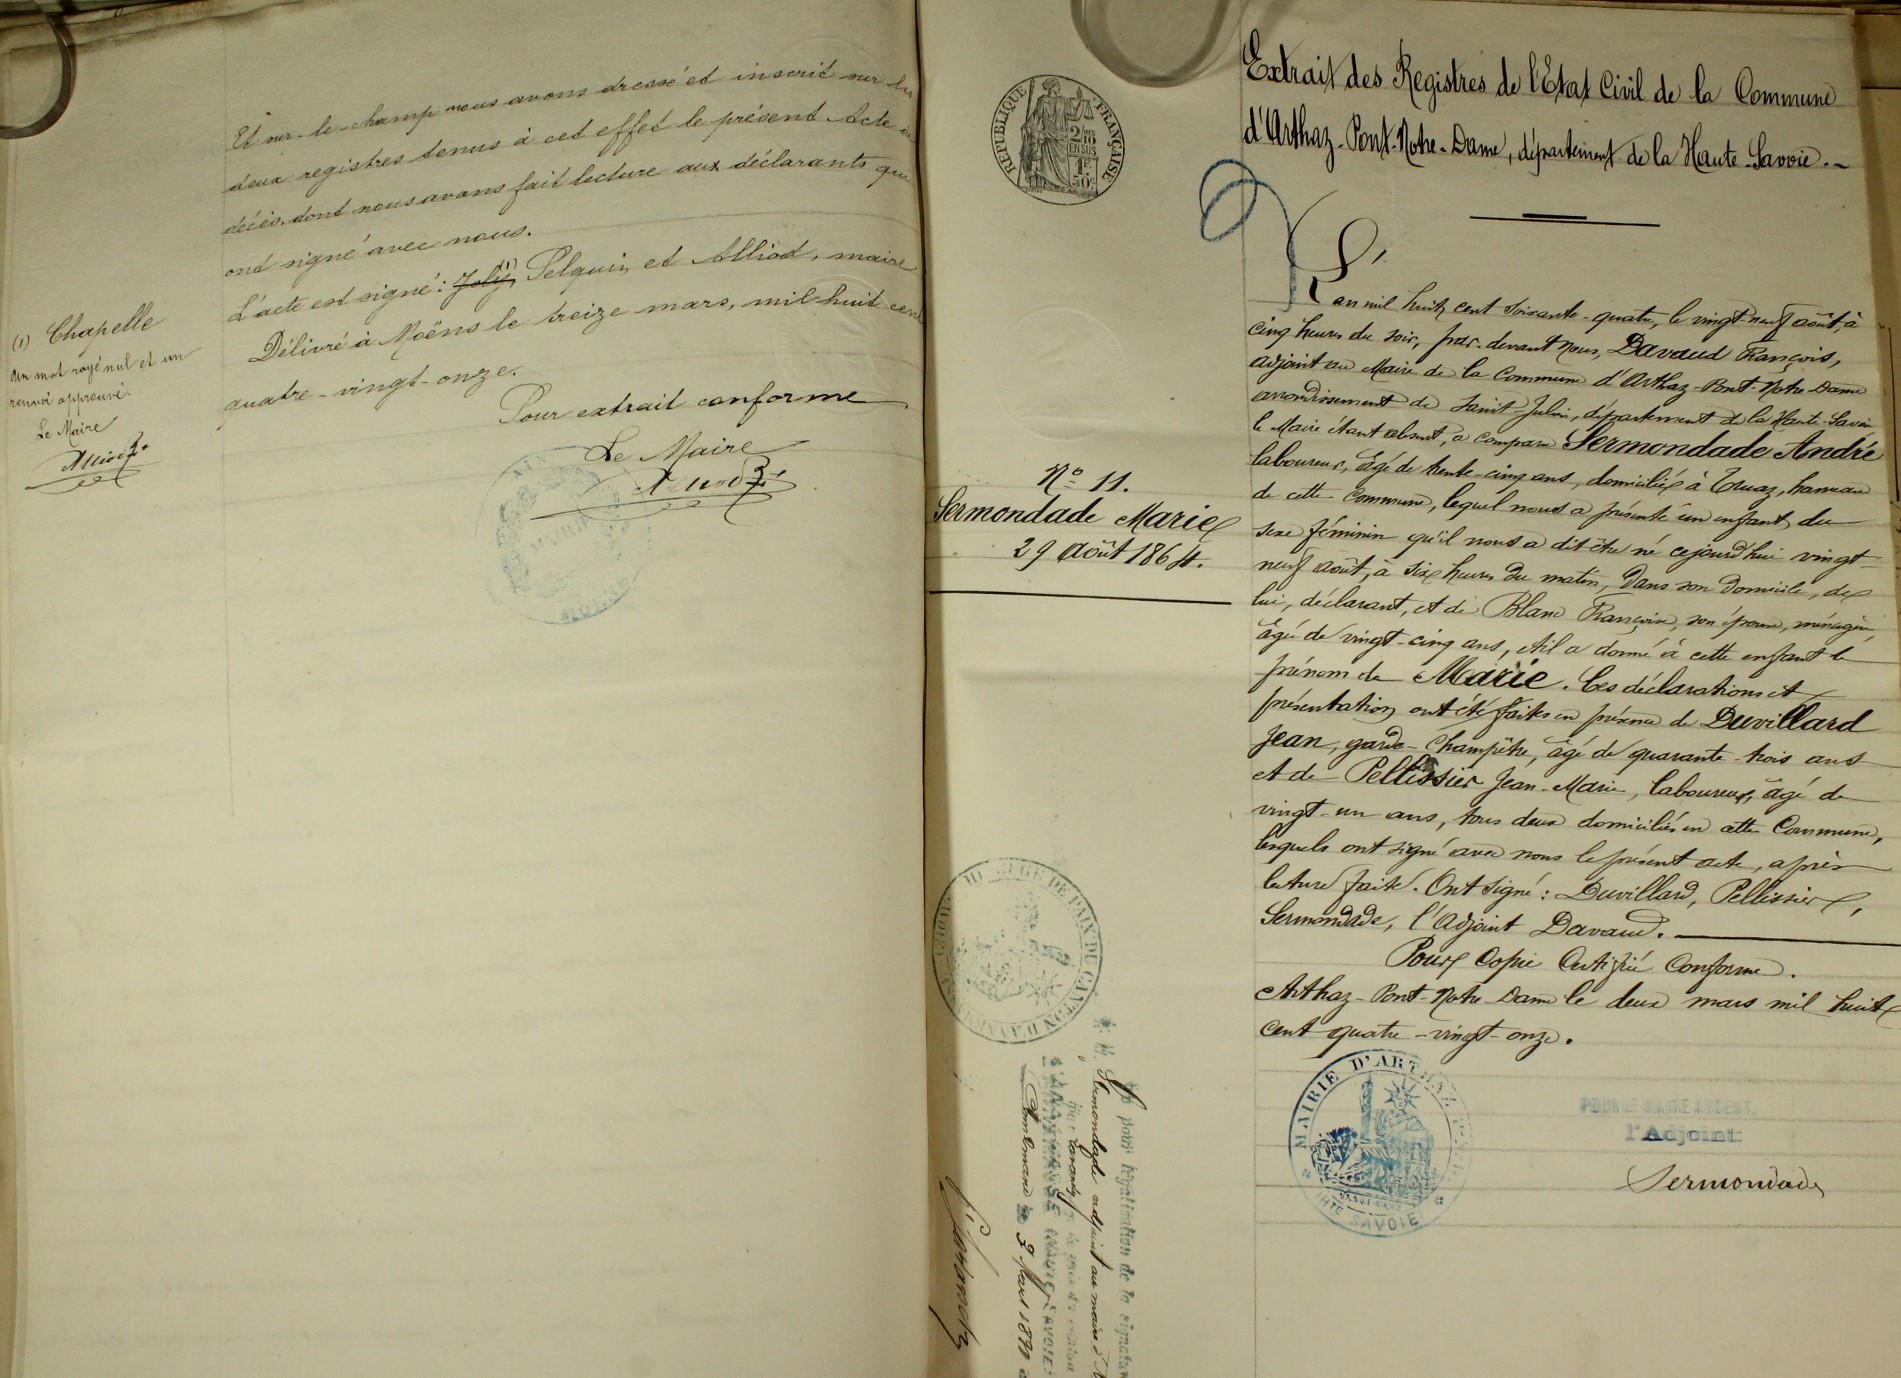 Et sur-le-champ nous avons dressé et inscrit sur les
deux registres tenus à cet effet le présent Acte de
décès, dont nous avons fait lecture aux déclarants qui
ont signé avec nous.
L'acte est signé : Joly, (1) Pelquin et Alliod, maire
Délivré à Moëns le treize mars, mil huit cent
quatre-vingt-onze.
Pour extrait conforme
Le Maire
Alliod
(1) Chapelle
un mot rayé nul et un
renvoi approuvé.
Le Maire
Alliod
MAIRIE
RÉPUBLIQUE FRANÇAISE
2/10
EN SUS
1F
50c
Nº 11.
Sermondade Marie
29 Août 1864.
Extrait des Registres de l'Etat Civil de la Commune
d'Arthaz-Pont-Notre-Dame, département de la Haute-Savoie.
L'an mil huit cent soixante-quatre, le vingt-neuf août à
cinq heures du soir, par-devant Nous, Davaud François,
adjoint au Maire de la Commune d'Arthaz-Pont-Notre-Dame
arrondissement de Saint-Julien, département de la Haute-Savoie
le Maire étant absent, a comparu Sermondade André
laboureur, âgé de trente-cinq ans, domicilié à Truaz, hameau
de cette Commune, lequel nous a présenté un enfant du
sexe féminin qu'il nous a dit être né cejourd'hui vingt-
neuf août, à six heures du matin, dans son domicile, de
lui, déclarant, et de Blanc Françoise, son épouse, ménagère,
âgée de vingt-cinq ans, et il a donné à cette enfant le
prénom de Marie. Ces déclarations et
présentation ont été faites en présence de Duvillard
Jean, garde-Champêtre, âgé de quarante-trois ans
et de Pellissier Jean-Marie, laboureur, âgé de
vingt-un ans, tous deux domiciliés en cette Commune,
lesquels ont signé avec nous le présent acte, après
lecture faite. Ont signé : Duvillard, Pellissier,
Sermondade, l'Adjoint Davaud.
Pour Copie Certifiée Conforme.
Arthaz-Pont-Notre-Dame le deux mars mil huit
cent quatre-vingt-onze.
MAIRIE D'ARTHAZ
SAVOIE
POUR LE MAIRE ABSENT,
l'Adjoint:
Sermondade
JUGE DE PAIX DU CANTON D'ANNEMASSE
Vu pour légalisation de la signature
Sermondade adjoint au maire
D'ANNEMASSE (HAUTE-SAVOIE)
3 Mars 1891